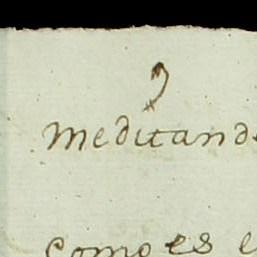 Meditand
como es e